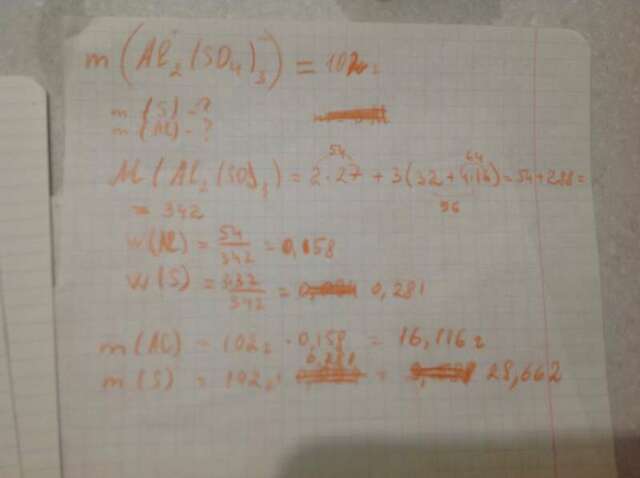 m(Al₂(SO₄)₃) = 102г
m(S) - ?
m(Al) - ?
M(Al₂(SO₄)₃) = 2·27 + 3(32+4·16) = 54+288 =
54 64
96
= 342
w(Al) = 54/342 = 0,158
w(S) = 3·32/342 = 0,281
m(Al) = 102г · 0,158 = 16,116г
m(S) = 102г · 0,281 = 28,662